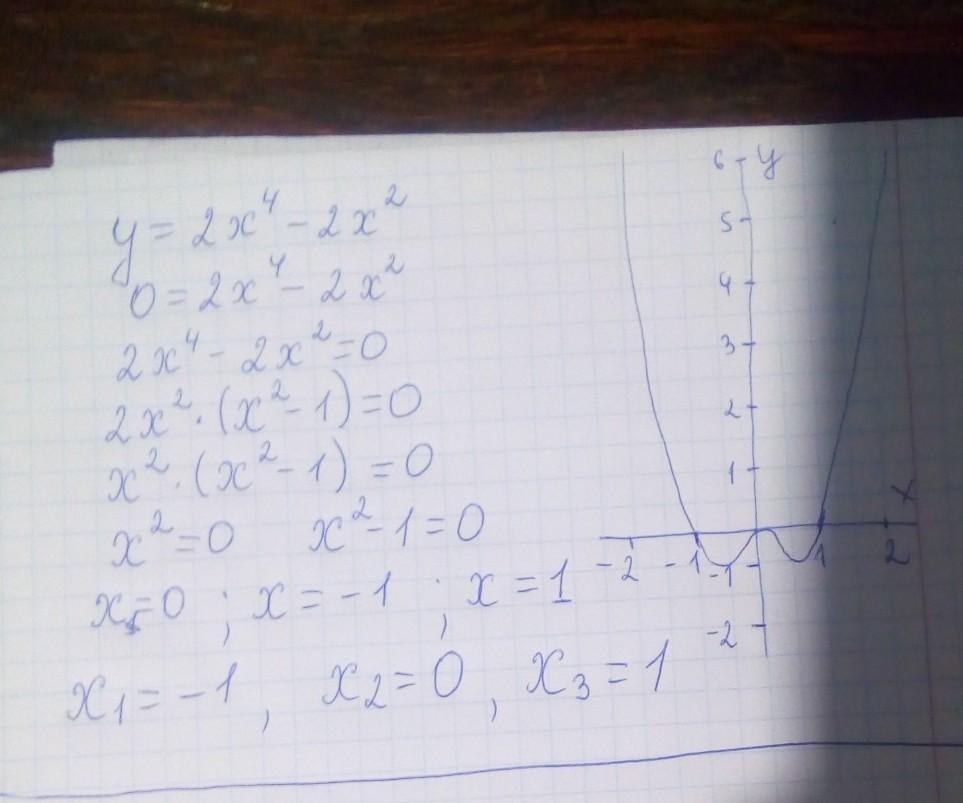 y = 2x⁴ - 2x²
0 = 2x⁴ - 2x²
2x⁴ - 2x² = 0
2x² · (x² - 1) = 0
x² · (x² - 1) = 0
x² = 0 x² - 1 = 0
x = 0 ; x = -1 ; x = 1
x₁ = -1 , x₂ = 0 , x₃ = 1
6 y
5
4
3
2
1
x
-2 -1 -1 1 2
-2